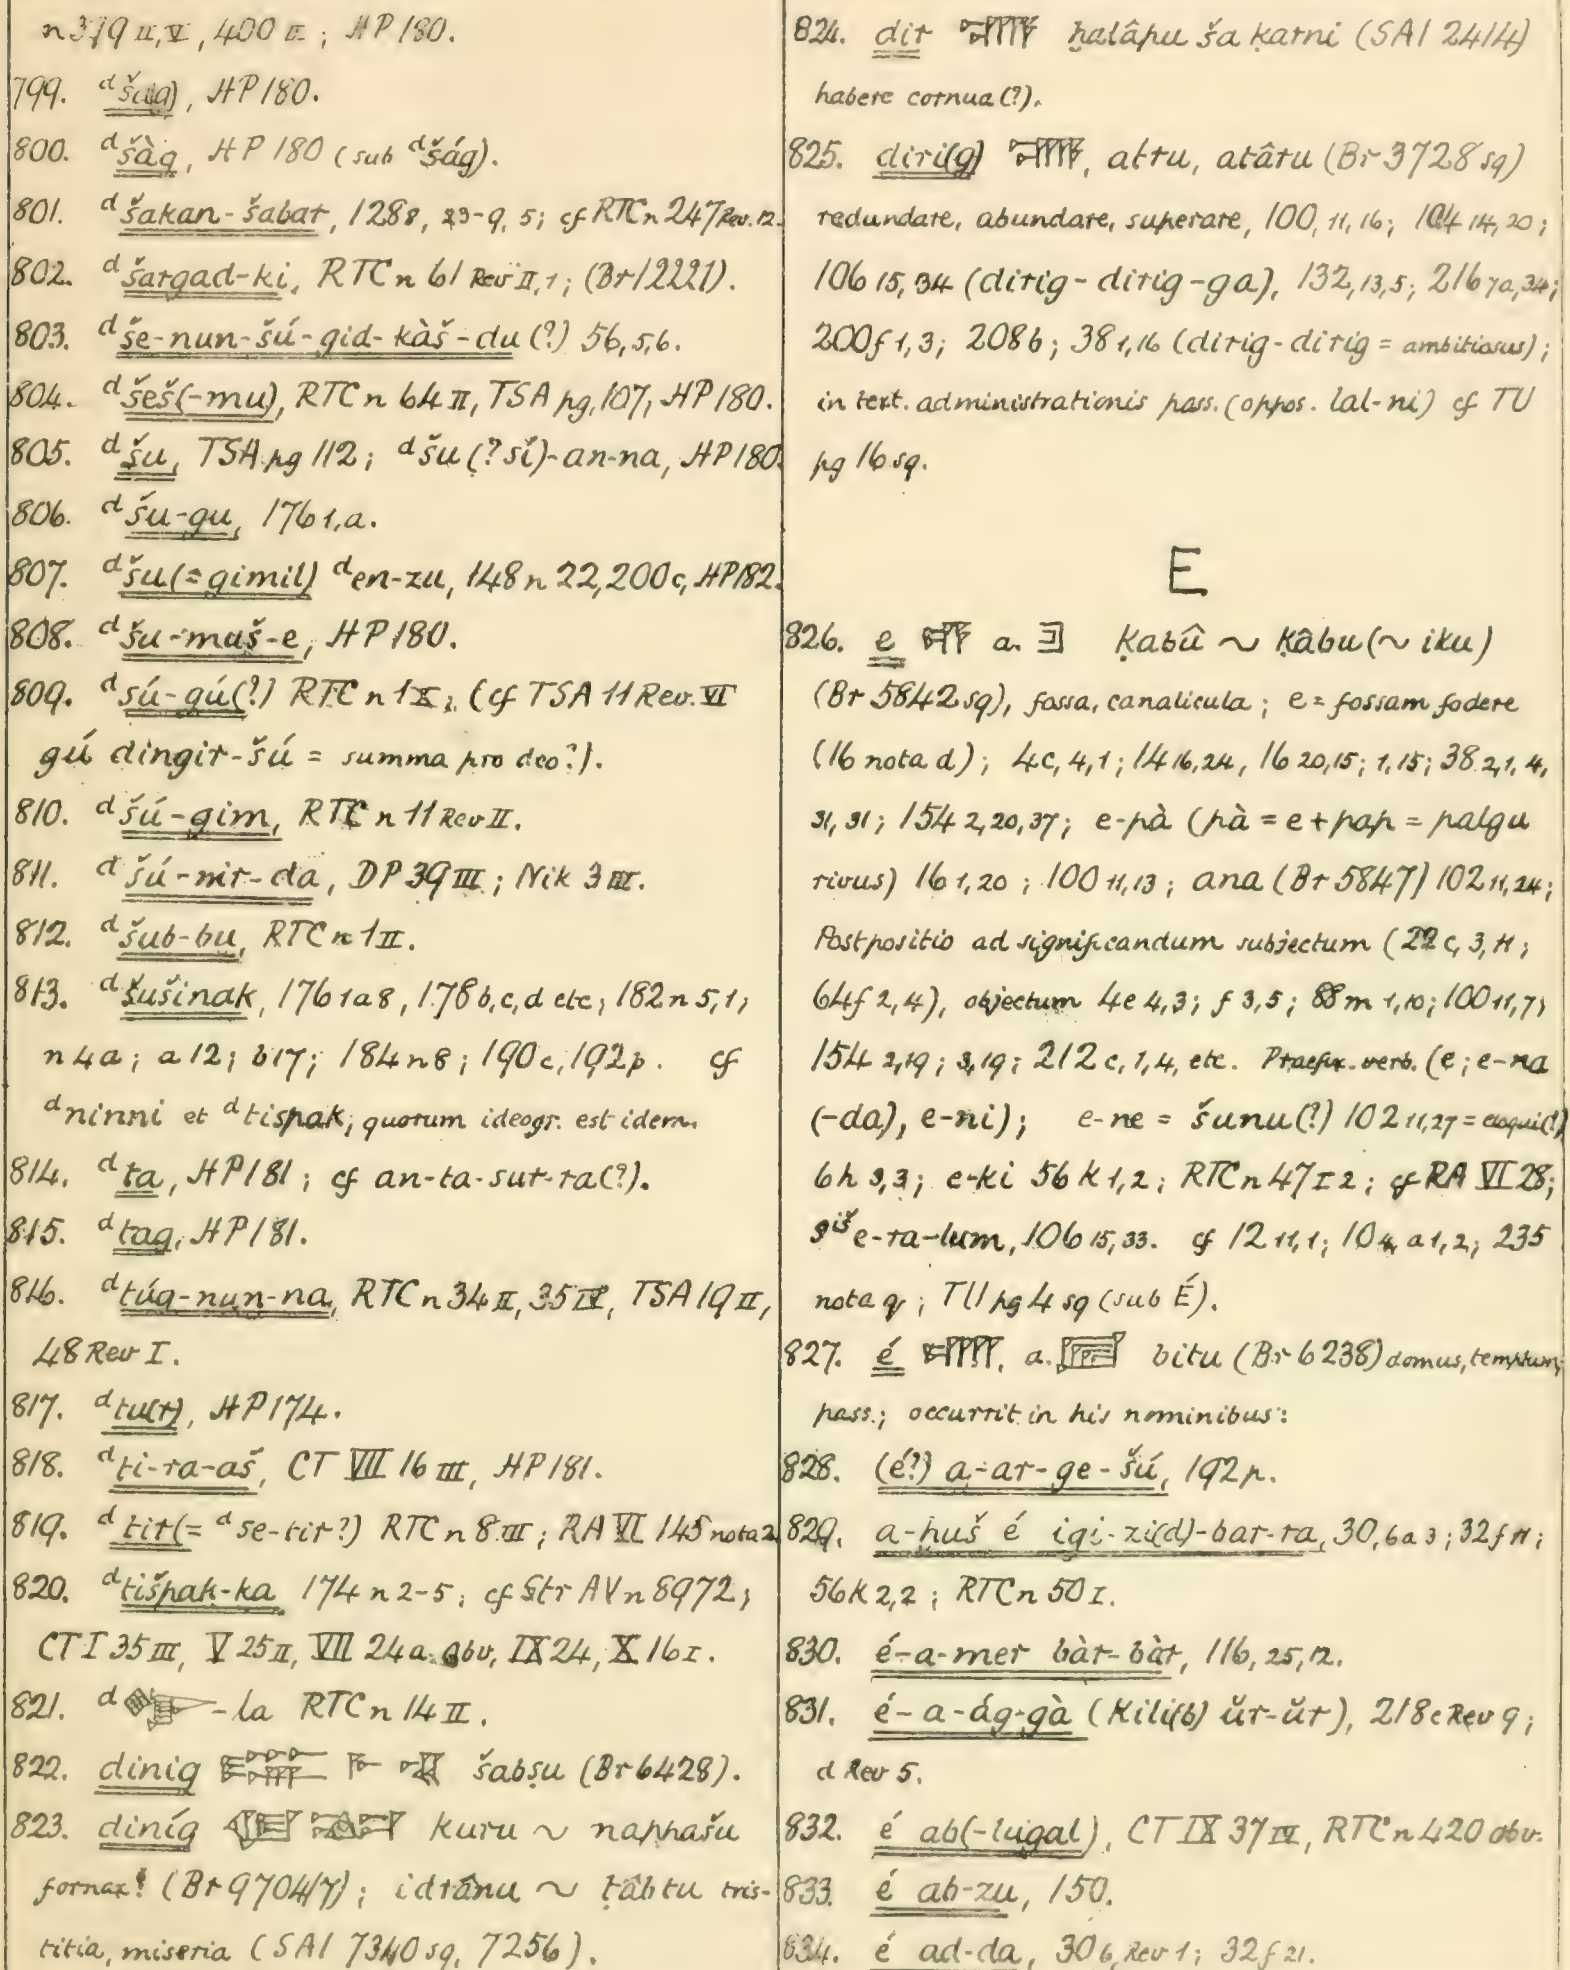 n 379 II, V, 400 II; HP 180.
799. ᵈšu(g), HP 180.
800. ᵈšàg, HP 180 (sub ᵈšág).
801. ᵈšakan-šabar, 128g, 23-9, 5; cf RTC n 247 Rev. 12.
802. ᵈšargad-ki, RTC n 61 Rev II, 1; (Br 12221).
803. ᵈše-nun-šú-gid-kàš-du (?) 56, 5,6.
804. ᵈšeš(-mu), RTC n 64 II, TSA pg. 107, HP 180.
805. ᵈšu, TSA pg 112; ᵈšu (? si)-an-na, HP 180.
806. ᵈšu-gu, 176 1, a.
807. ᵈšu(= gimil) ᵈen-zu, 148 n 22, 200 c, HP 182.
808. ᵈšu-maš-e, HP 180.
809. ᵈšú-gú(?) RTC n 1 X; (cf TSA 11 Rev. VI
gú dingir-šú = summa pro deo?).
810. ᵈšú-gim, RTC n 11 Rev II.
811. ᵈšú-nir-da, DP 39 III; Nik 3 III.
812. ᵈšub-bu, RTC n 1 II.
813. ᵈšušinak, 176 1a 8, 178 b, c, d etc; 182 n 5, 1;
n 4a; a 12; b 17; 184 n 8; 190 c, 192 p. cf
ᵈninni et ᵈtišpak, quorum ideogr. est idem.
814. ᵈta, HP 181; cf an-ta-sur-ra(?).
815. ᵈtag, HP 181.
816. ᵈtúg-nun-na, RTC n 34 II, 35 IV, TSA 19 II,
48 Rev I.
817. ᵈtu(r), HP 174.
818. ᵈti-ra-aš, CT VII 16 III, HP 181.
819. ᵈtir(= ᵈse-tir?) RTC n 8 III; RA VI 145 nota 2
820. ᵈtišpak-ka 174 n 2-5; cf Str AV n 8972;
CT I 35 III, V 25 II, VII 24 a. obv, IX 24, X 16 I.
821. ᵈ -la RTC n 14 II.
822. dinig šabṣu (Br 6428).
823. diníg kuru ~ nappašu
fornax! (Br 9704/7); idrânu ~ ṭâbtu tris-
titia, miseria (SAI 7340 sq, 7256).
824. dir ḫalâpu ša ḳarni (SAI 2414)
habere cornua (?).
825. diri(g) , atru, atâru (Br 3728 sq)
redundare, abundare, superare, 100, 11, 16; 104 14, 20;
106 15, 34 (dirig-dirig-ga), 132, 13, 5; 216 7a, 34;
200 f 1, 3; 208 b; 38 1, 16 (dirig-dirig = ambitiosus);
in text. administrationis pass. (oppos. lal-ni) cf TU
pg 16 sq.
E
826. e a. ḳabû ~ ḳâbu (~ iku)
(Br 5842 sq), fossa, canalicula; e = fossam fodere
(16 nota d); 4c, 4, 1; 14 16, 24, 16 20, 15; 1, 15; 38 2, 1, 4,
31, 31; 154 2, 20, 37; e-pà (pà = e + pap = palgu
rivus) 16 1, 20; 100 11, 13; ana (Br 5847) 102 11, 24;
Postpositio ad significandum subjectum (22 c, 3, 11;
64 f 2, 4), objectum 4e 4, 3; f 3, 5; 88 m 1, 10; 100 11, 7;
154 2, 19; 3, 19; 212 c, 1, 4, etc. Praefix. verb. (e; e-na
(-da), e-ni); e-ne = šunu(?) 102 11, 27 = eloqui(?)
6 h 3, 3; e-ki 56 k 1, 2; RTC n 47 I 2; cf RA VI 28;
ᵍⁱˢ̌e-ra-lum, 106 15, 33. cf 12 11, 1; 104 a 1, 2; 235
nota q; TU pg 4 sq (sub É).
827. é , a. bitu (Br 6238) domus, templum,
pass.; occurrit in his nominibus:
828. (é?) a-ar-ge-šú, 192 p.
829. a-ḫuš é igi-zi(d)-bar-ra, 30, 6 a 3; 32 f 11;
56 k 2, 2; RTC n 50 I.
830. é-a-mer bàr-bàr, 116, 25, 12.
831. é-a-ág-gà (kili(b) ŭr-ŭr), 218 c Rev 9;
d Rev 5.
832. é ab(-lugal), CT IX 37 IV, RTC n 420 obv.
833. é ab-zu, 150.
834. é ad-da, 30 6, Rev 1; 32 f 21.